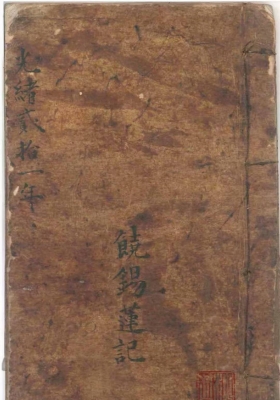 光緒貳拾一年
饒錫蓮記